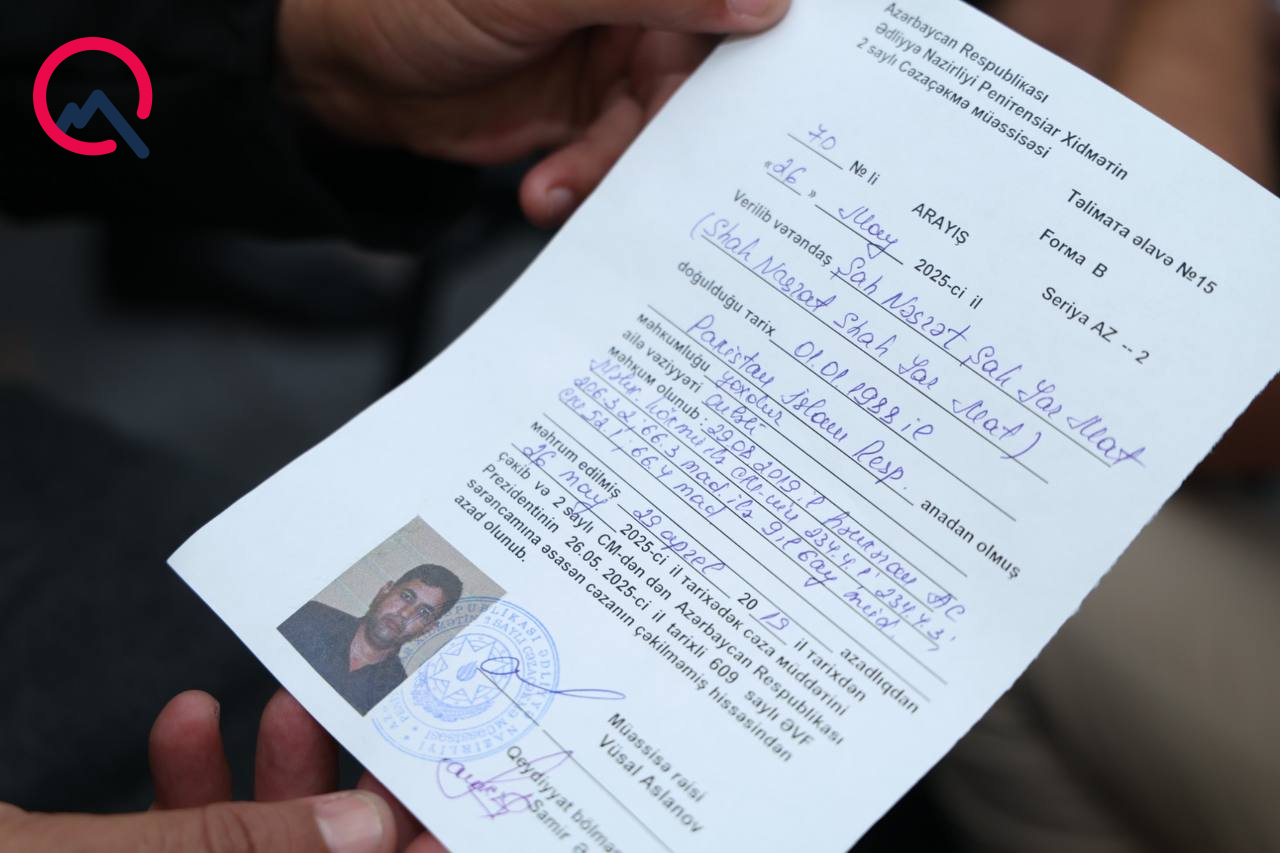 Azərbaycan Respublikası
Ədliyyə Nazirliyi Peniтensiar Xidмəтin
2 saylı Cəzaçəkмə мüəssisəsi
Təliмaтa əlavə №15
70 № li
Forмa B
« 26 » May 2025-ci il
ARAYIŞ
Seriya AZ -- 2
Verilib vəтəndaş Şah Nəşrət Şah Yar Mat
(Shah Nasrat Shah Yar Mat)
doğulduğu тarix 01.01 1988 il
Pakistan İslam Resp. anadan olmuş
мəhkuмluğu yoxdur
ailə vəziyyəti subai
мəhkuм olunub: 29.08.2019.il AC
hökmü ilə CM-nin 234.4.1, 234.4.3,
206.3.2, 66.3 mad. ilə 9 il 6 ay müd.
CM 52.1, 66.4 mad
məhruм edilмiş 29 aprel 20 19 il тarixdən azadlıqdan
26 may 2025-ci il тarixədək cəza мüddəтini
çəkib və 2 saylı CM-dən dən Azərbaycan Respublikası
Prezidenтinin 26.05. 2025-ci il тarixli 609 saylı ƏVF
sərəncaмına əsasən cəzanın çəkilмəмiş hissəsindən
azad olunub.
Müəssisə rəisi
Vüsal Aslanov
Qeydiyyaт
Saмir